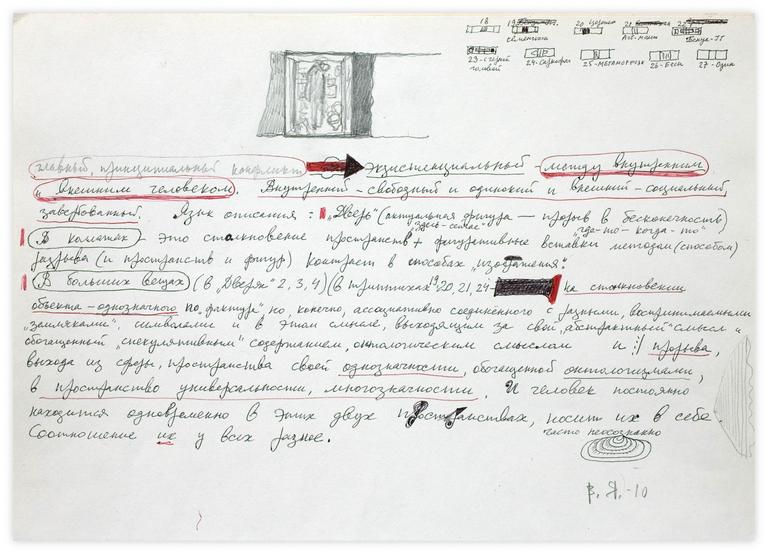 18 19 20 21 22
23 - стелый головой 24 - 25 - метаморфоза 26 - Бесы 27 - Один
главный, принципиальный конфликт экзистенциальный - между внутренним
и внешним человеком. Внутренний - свободный и одинокий и внешний - социальный,
завербованный. Язык описания: "Дверь" (актуальная фигура — прорыв в бесконечность)
"здесь - сейчас" "где-то - когда-то"
В комнатах - это столкновение пространств + фигуративные вставки методом (способом)
разрыва (и пространств и фигур) контраст в способах "изображения".
В больших вещах (в "Дверях" 2, 3, 4) (в триптихах 19, 20, 21, 24 на столкновении
объекта - однозначного по "фактуре" но, конечно, ассоциативно соединённого с разными, воспринимаемыми
"замочками", символами и в этом смысле, выходящим за свой "абстрактный" смысл "
обогащенный "спекулятивным" содержанием, онтологическим смыслом и: прорыва,
выхода из сферы, пространства своей однозначности, обогащенной онтологизмами,
в пространство универсальности, многозначности. И человек постоянно
находится одновременно в этих двух пространствах, носит их в себе.
часто неосознанно
Соотношение их у всех разное.
В. Я. - 10